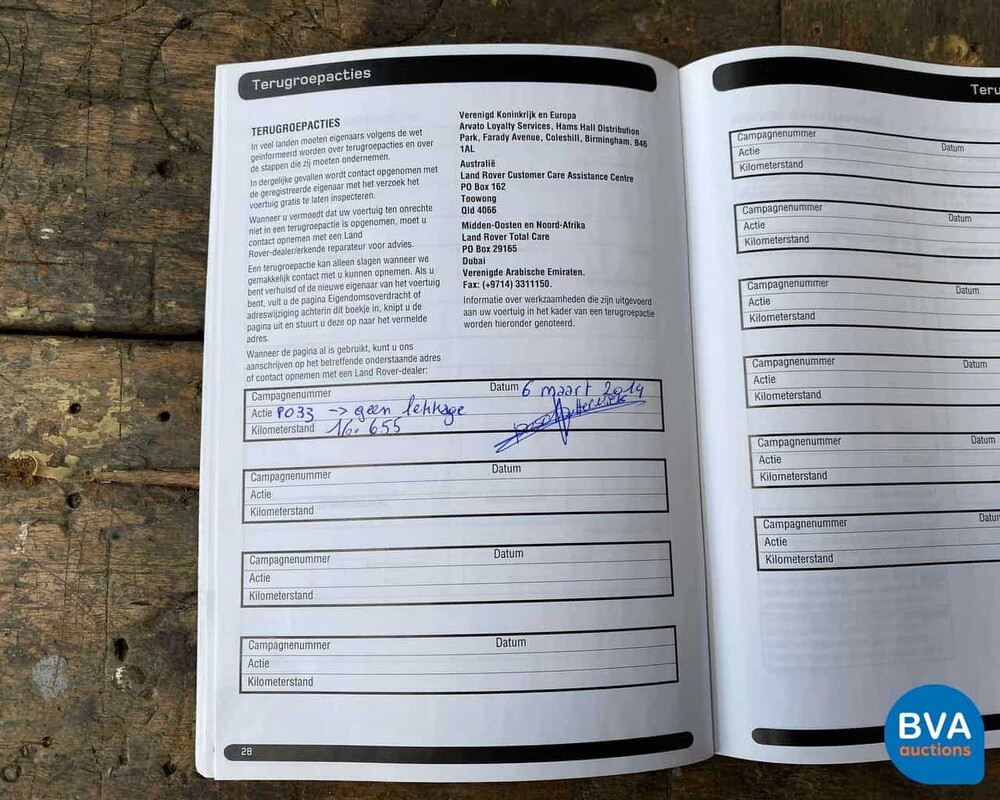 Terugroepacties
TERUGROEPACTIES
In veel landen moeten eigenaars volgens de wet
geïnformeerd worden over terugroepacties en over
de stappen die zij moeten ondernemen.
In dergelijke gevallen wordt contact opgenomen met
de geregistreerde eigenaar met het verzoek het
voertuig gratis te laten inspecteren.
Wanneer u vermoedt dat uw voertuig ten onrechte
niet in een terugroepactie is opgenomen, moet u
contact opnemen met een Land
Rover-dealer/erkende reparateur voor advies.
Een terugroepactie kan alleen slagen wanneer we
gemakkelijk contact met u kunnen opnemen. Als u
bent verhuisd of de nieuwe eigenaar van het voertuig
bent, vult u de pagina Eigendomsoverdracht of
adreswijziging achterin dit boekje in, knipt u de
pagina uit en stuurt u deze op naar het vermelde
adres.
Wanneer de pagina al is gebruikt, kunt u ons
aanschrijven op het betreffende onderstaande adres
of contact opnemen met een Land Rover-dealer:
Verenigd Koninkrijk en Europa
Arvato Loyalty Services, Hams Hall Distribution
Park, Farady Avenue, Coleshill, Birmingham. B46
1AL
Australië
Land Rover Customer Care Assistance Centre
PO Box 162
Toowong
Qld 4066
Midden-Oosten en Noord-Afrika
Land Rover Total Care
PO Box 29165
Dubai
Verenigde Arabische Emiraten.
Fax: (+9714) 3311150.
Informatie over werkzaamheden die zijn uitgevoerd
aan uw voertuig in het kader van een terugroepactie
worden hieronder genoteerd.
Campagnenummer Datum 6 maart 2014
Actie P033 -> geen lekkage
Kilometerstand 16.655
Campagnenummer Datum
Actie
Kilometerstand
Campagnenummer Datum
Actie
Kilometerstand
Campagnenummer Datum
Actie
Kilometerstand
28
Teru
Campagnenummer Datum
Actie
Kilometerstand
Campagnenummer Datum
Actie
Kilometerstand
Campagnenummer Datum
Actie
Kilometerstand
Campagnenummer Datum
Actie
Kilometerstand
Campagnenummer Datum
Actie
Kilometerstand
Campagnenummer Datun
Actie
Kilometerstand
BVA
auctions